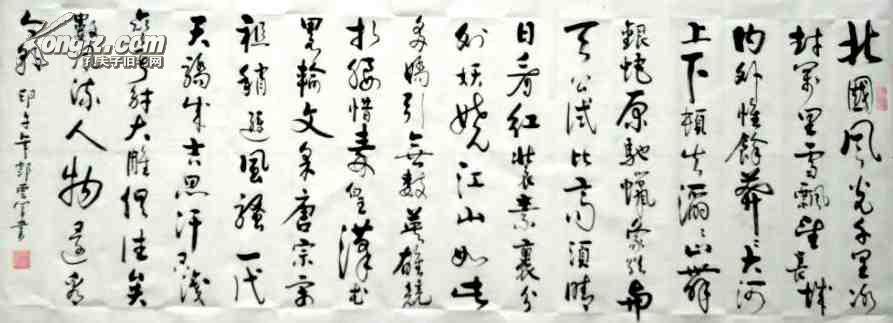 北國風光千里冰
封萬里雪飄望長城
内外惟餘莽〻大河
上下頓失滔〻山舞
銀蛇原馳蠟象欲與
天公試比高須晴
日看紅裝素裹分
外妖嬈江山如此
多嬌引無數英雄競
折腰惜秦皇漢武
略輸文采唐宗宋
祖稍遜風騷一代
天驕成吉思汗只識
彎弓射大雕俱往矣
數風流人物還看
今朝 年 書
孔夫子旧书网